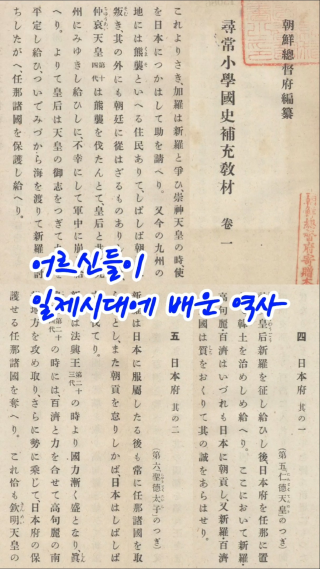 朝鮮總督府編纂
尋常小學國史補充教材 卷一
これよりさき、加羅は新羅と爭ひ、崇神天皇の時使
を日本につかはして助を請へり。又今の九州の
地には熊襲といへる住民ありて、しばしば朝
叛き、其の外にも朝廷に從はざるものありし
仲哀天皇第十四代は熊襲を伐たんとて、皇后と共
州にみゆきし給ひしに、不幸にして軍中に崩
へり。よりて皇后は天皇の御志をつぎて
平定し給ひ、ついでみづから海を渡りて新羅
ちしたがへ、任那諸國を保護し給へり。
어르신들이
일제시대에 배운 역사
四 日本府 其の一
(第五 仁德天皇のつぎ)
皇后新羅を征し給ひし後日本府を任那に置
韓土を治めしめ給へり。ここにおいて新羅・
高句麗・百濟はいづれも日本に朝貢し、又新羅・百濟
國は質をおくりて其の誠をあらはせり。
五 日本府 其の二
(第六 聖德太子のつぎ)
は日本に服屬したる後も常に任那諸國を取
とし、また朝貢を怠りしかば、日本はしばしば
てり。
は法興王第二十三代の時より國力漸く盛となり、眞
第二十の時には百濟と力を合せて高句麗の南
地方を攻め取り、さらに勢に乘じて、日本府の保
護せる任那諸國を へり。これ恰も欽明天皇の